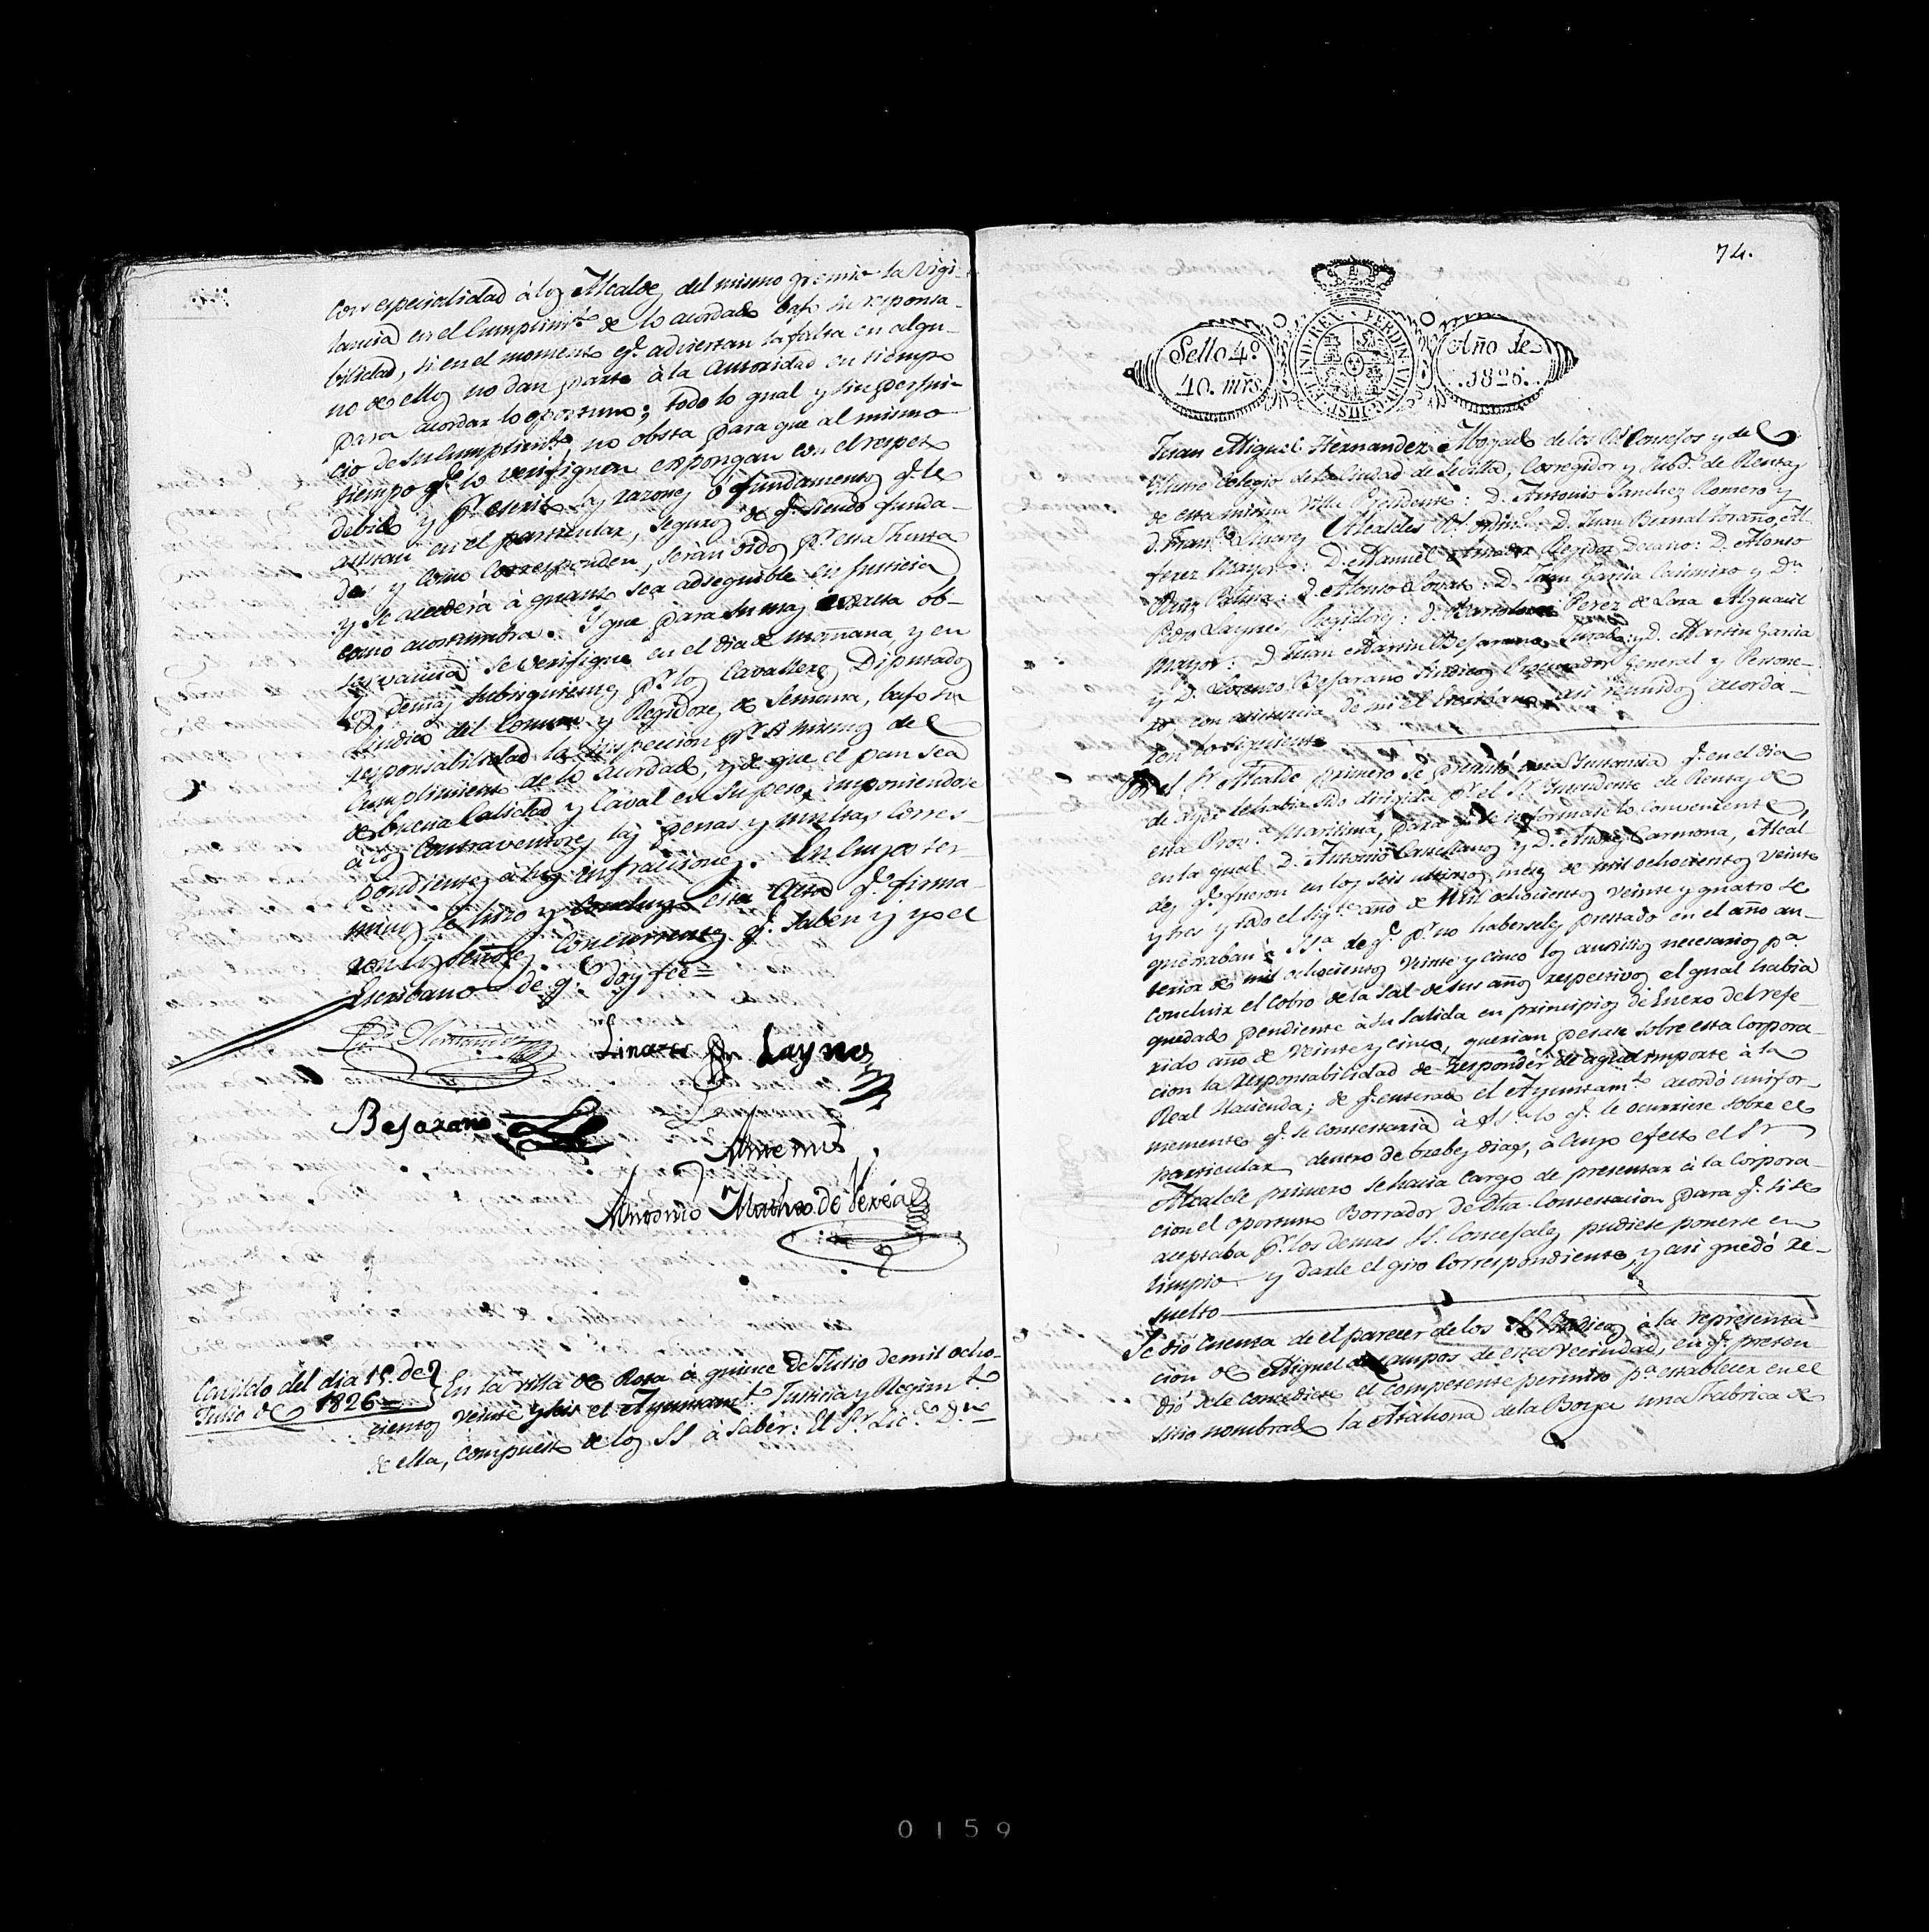 con especialidad à los Alcaldes del mismo gremio la vigi-
lancia en el Cumplim.to de lo acordado bajo su responsa-
bilidad, si en el momento q.e adviertan la falta en algu-
no de ellos no dan parte à la autoridad en tiempo
para acordar lo oportuno; todo lo qual y sin perjui-
cio de su Cumplimiento, no obsta para que al mismo
tiempo q.e lo verifiquen expongan con el respeto
debido y p.r escrito las razones ó fundamentos q.e le
asistan en el particular, seguros de q.e siendo funda-
das y como corresponden, serán oidos p.r esta Junta
y se accederá à quanto sea adsequible en Justicia
como acostumbra. Y que para su mas exacta ob-
servancia se verifique en el dia de mañana y en
los demas subsiguientes p.r los Cavalleros Diputados
Sindico del Comun y Regidores de Semana, bajo su
responsabilidad la inspeccion p.r si mismos del
Cumplimiento de lo acordado, y de que el pan sea
de buena Calidad y Caval en su peso, imponiendose
à los Contraventores las penas y multas Corres-
pondientes à las infracciones. En cuyos ter-
minos se hizo y concluyó esta Acta q.e firma-
ron los Señores Concurrentes q.e saben y yo el
Escribano de q.e doy fee=
Lic.do Hernandez
Linares
Laynes
Bejarano
Ante mi
Antonio Matheo de Perea
Cavildo del dia 15. de
Julio de 1826=
En la villa de Rota à quince de Julio de mil ocho-
cientos veinte y seis el Ayuntam.to Justicia y Regim.to
de ella, compuesto de los SS à saber: El S.r Lic.do D.n
74.
Sello 4.o
40. mrs.
FERDIN. VII. D. G. HISP. ET IND. REX
Año de
1826.
Juan Miguel Hernandez Abogado de los R.s Consejos y del
Ilustre Colegio de la Ciudad de Sevilla, Corregidor y Subd.o de Rentas
de esta misma villa Presidente: D. Antonio Sanchez Romero y
D. Fran.co Linares Alcaldes R.s ordin.s: D. Juan Bernal Toraño, Al-
ferez Mayor: D. Manuel Amador Regidor Decano: D. Alonso
Ruiz Patina: D. Alonso: D. Juan Garcia Casimiro y D.n
Pedro Laynes, Regidores: D. Bartolome Perez de Lara Alguacil
mayor: D. Juan Martin Bejarano, Jurado: y D. Martin Garcia
y D. Lorenzo Bejarano Sindicos Procurador General y Persone-
ro con asistencia de mi el Escribano; asi reunidos acorda-
ron lo siguiente
Por el S.r Alcalde primero se presentó una Instancia q.e en el dia
de ayer le habia sido dirigida p.r el S.r Intendente de Rentas de
esta Prov.a Maritima, para q.e se informase lo conveniente,
en la qual D. Antonio Castellanos y D. Andres Carmona, Alcal-
des q.e fueron en los seis ultimos meses de mil ochocientos veinte
y tres y todo el sig.te año de mil ochocientos veinte y quatro se
quexaban à SS.a de q.e p.r no haberseles prestado en el año an-
terior de mil ochocientos veinte y cinco los auxilios necesarios p.a
concluir el cobro de la Sal de sus años respectivos el qual habia
quedado pendiente à su salida en principios de Enero del refe-
rido año de veinte y cinco, querian pesase sobre esta Corpora-
cion la responsabilidad de responder de aquel importe à la
Real Hacienda; de q.e enterado el Ayuntam.to acordó unifor-
memente q.e se contestaria à SS.a lo q.e le ocurriese sobre el
particular, dentro de brebes dias, à cuyo efecto el S.r
Alcalde primero se hacia cargo de presentar à la Corpora-
cion el oportuno Borrador de dha. Contestacion para q.e si se
aceptaba p.r los demas SS. Concejales pudiese ponerse en
limpio y darle el giro correspondiente, y asi quedó re-
suelto
Se dió cuenta de el parecer de los SS. Sindicos à la representa-
cion de Miguel de Campos de esta vecindad, en q.e preten-
dió se le concediese el competente permiso p.a establecer en el
sitio nombrado la Atahona de la Borja una Fabrica de
0159